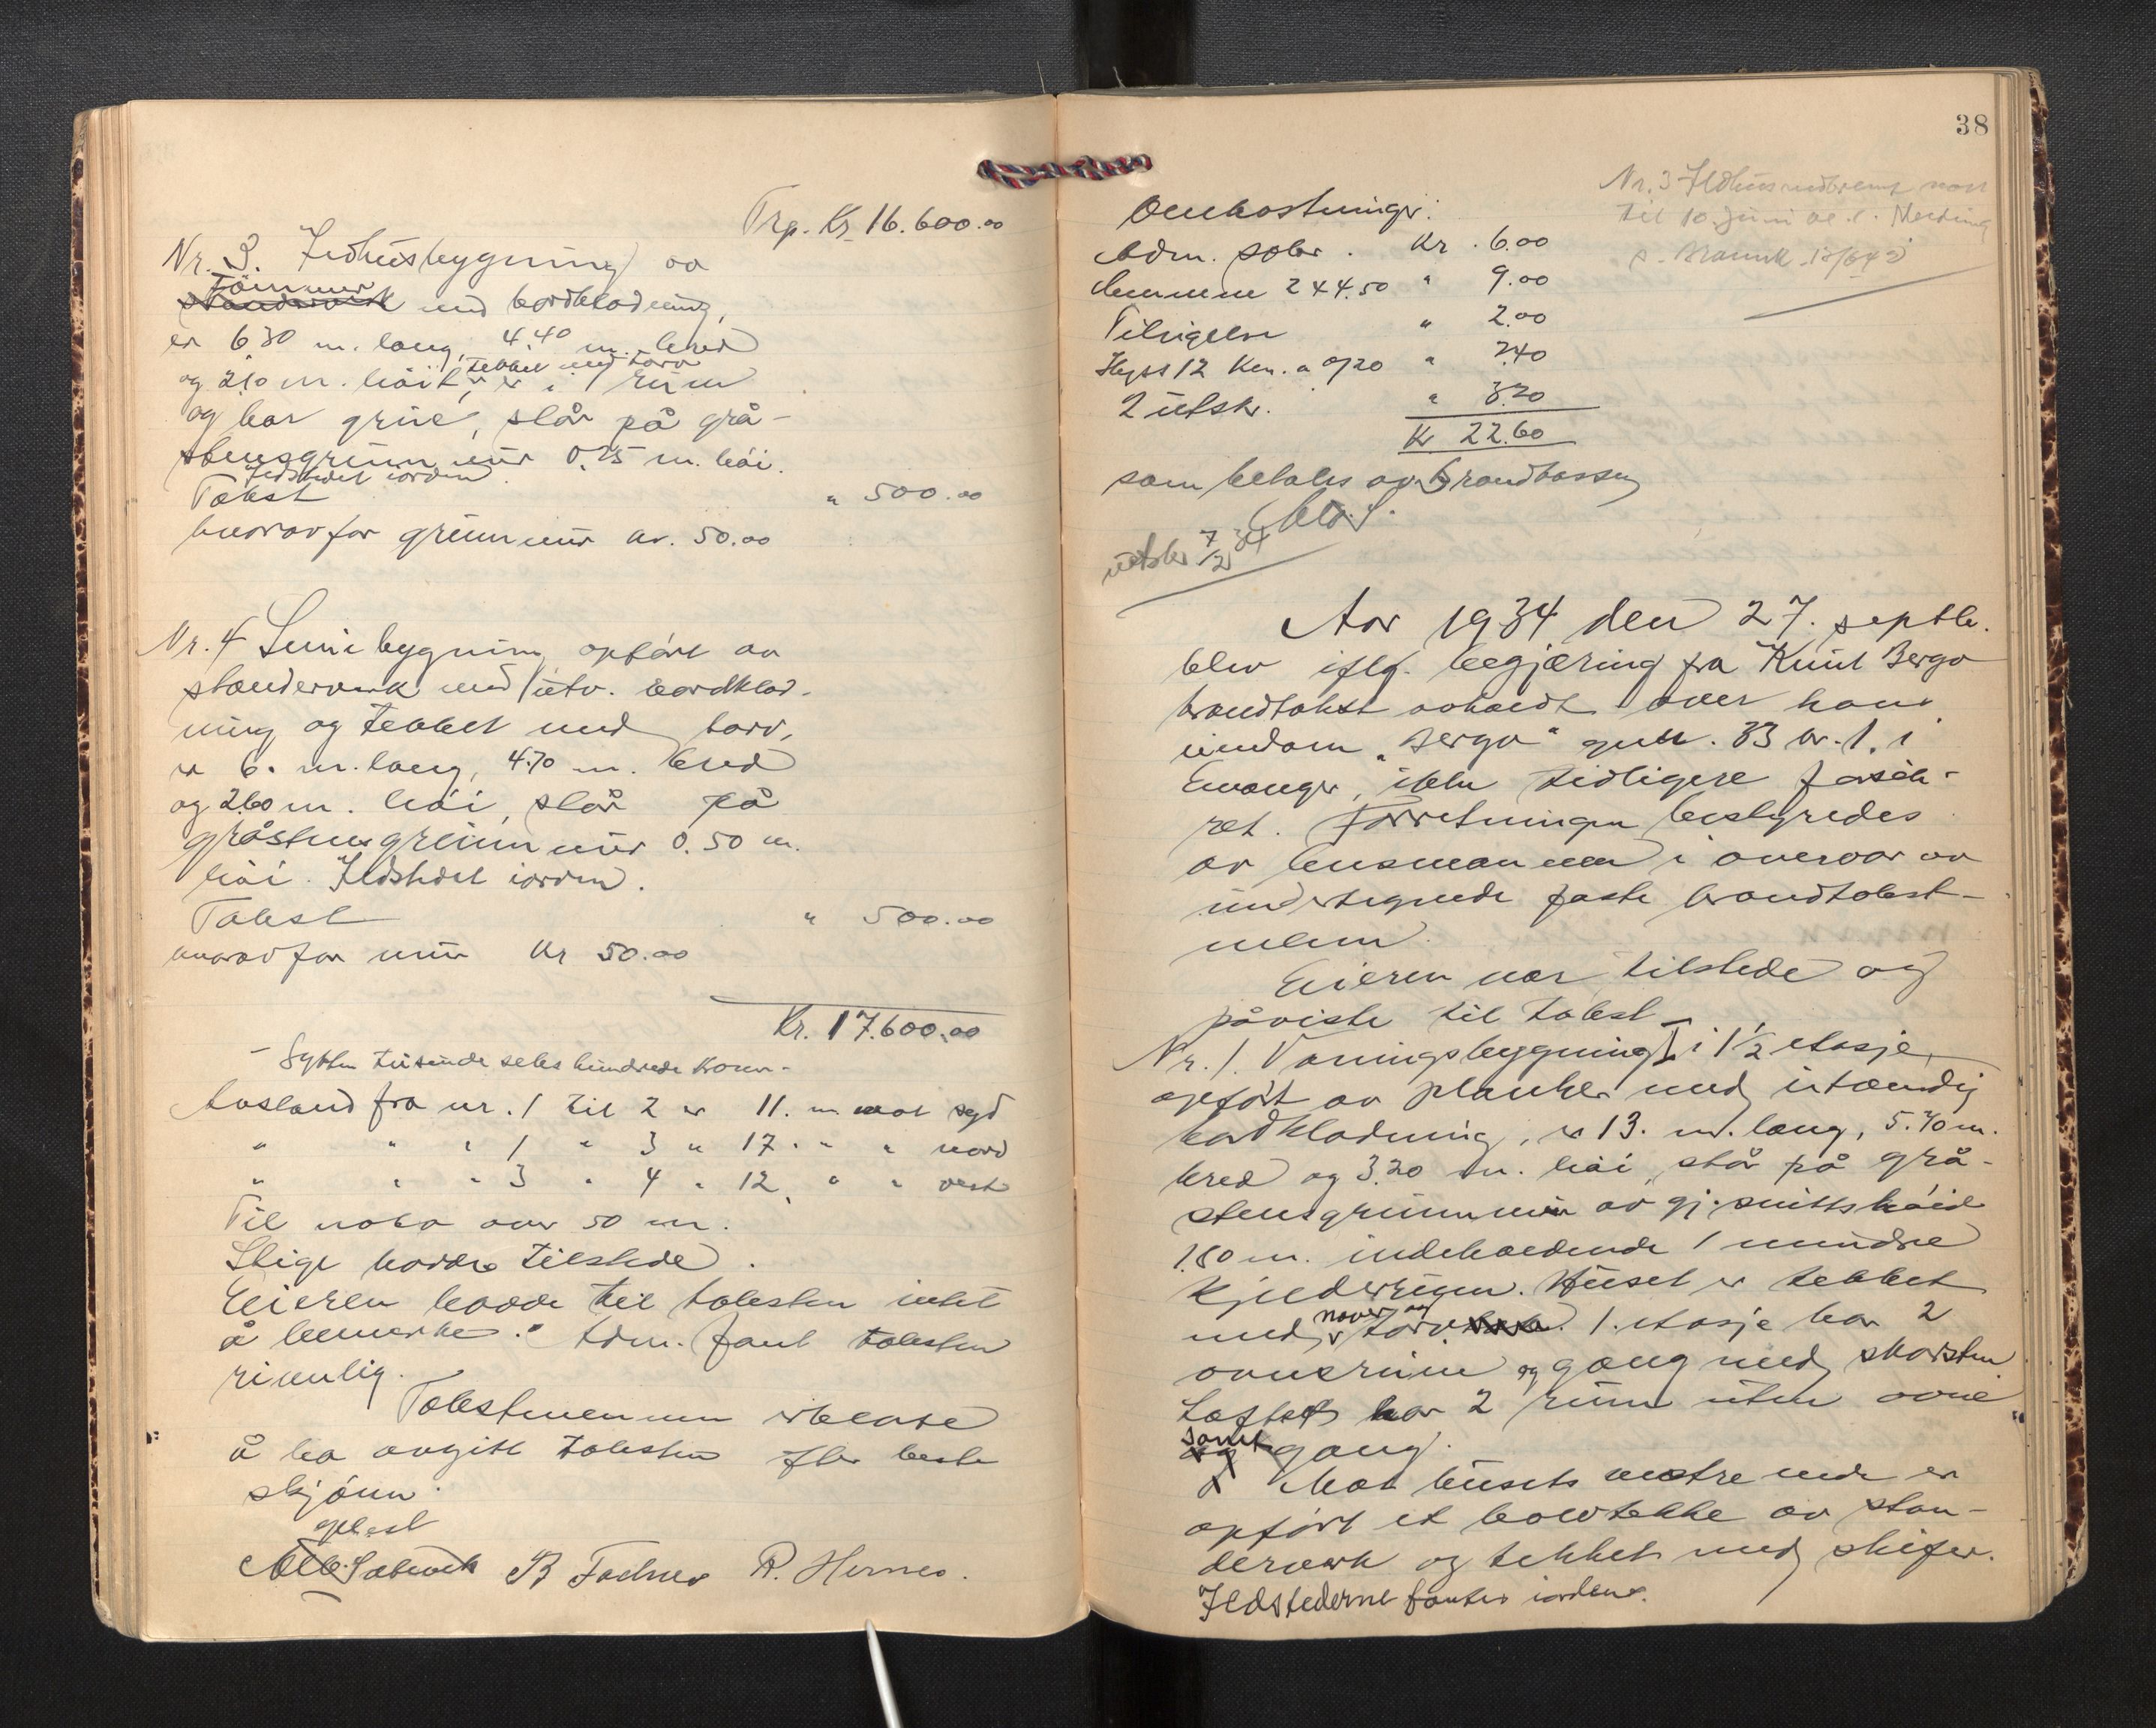 Trp. Kr. 16.600.00
Nr. 3. Ildhusbygning av
Tömmer
standerverk med bordkledning,
er 6.30 m. lang, 4.40 m. bred
tekket med torv
og 2.10 m. höit, er i 1 rum
og har grue, står på grå-
stensgrunnmur 0.75 m. höi.
Ildstedet iorden.
Takst " 500.00
herav for grunnmur kr. 50.00
Nr. 4 Smiebygning opfört av
standerverk med utv. bordkled-
ning og tekket med torv,
er 6. m. lang, 4.70 m. bred
og 2.60 m. höi, står på
gråstensgrunnmur 0.50 m.
höi. Ildstedet iorden.
Takst " 500.00
herav for mur Kr 50.00
Kr. 17.600.00
- Sytten tusinde seks hundrede kroner-
Avstand fra nr. 1 til 2 er 11. m mot syd
" " " 1 " 3 " 17 " " " nord
" " " 3 " 4 " 12. " " vest
Til nabo over 50 m.
Stige havdes tilstede.
Eieren havde til taksten intet
å bemerke. Adm. fant taksten
rimelig.
Takstmennene erklærte
å ha avgitt taksten efter beste
skjönn.
oplest
B Fadnes R. Hernes.
38
Nr. 3 Ildhus nedbrent natt
til 10. juni
Omkostninger:
Adm. salær. Kr. 6.00
Mennene 2 á 4.50 " 9.00
Tilsigelse " 2.00
Skyss 12 km. a 0/20 " 2.40
2 utskr. " 3.20
Kr 22.60
som betales av Brandkassen
utskr 7/12 34
Aar 1934 den 27. septbr.
blev iflg. begjæring fra Knut Bergo
brandtakst avholdt over hans
eiendom "Bergo" gnr. 33 br. 1. i
Evanger, ikke tidligere forsik-
ret. Forretningen bestyredes
av lensmannen i overvær av
undertegnede faste brandtakst-
menn.
Eieren var tilstede og
påviste til takst
Nr. 1. Våningsbygning i 1 1/2 etasje,
opfört av planker med utvendig
bordkledning, er 13. m. lang, 5.70 m.
bred og 3.20 m. höi, står på grå-
stensgrunnmur av gj. snittshöide
1.80 m. indeholdende 1 mindre
kjelderrum. Huset er tekket
med never og torv. 1. etasje har 2
ovnsrum og gang med skorsten
Loftet har 2 rum uten ovne
samt gang.
Mot husets vestre ende er
opfört et halvtekke av stan-
derverk og tekket med skifer.
Ildstederne fantes iordene.